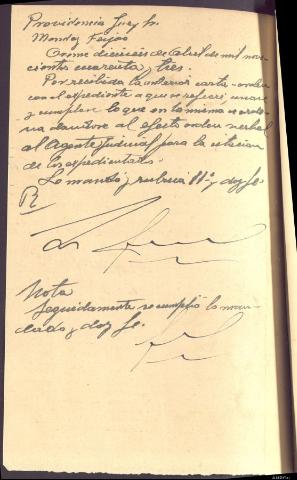 Providencia Juez Sr.
Mendez Feijoo
Orense dieciseis de Abril de mil nove-
cientos cuarenta y tres.
Por recibida la anterior carta-orden
con el expediente a que se refiere; unase
y cumplase lo que en la misma se orde-
na dandose al efecto orden verbal
al Agente judicial para la citacion
de los expedientados.
Lo mandó y rubrica S.Sª y doy fe.
Nota
Seguidamente se cumplió lo man-
dado y doy fe.